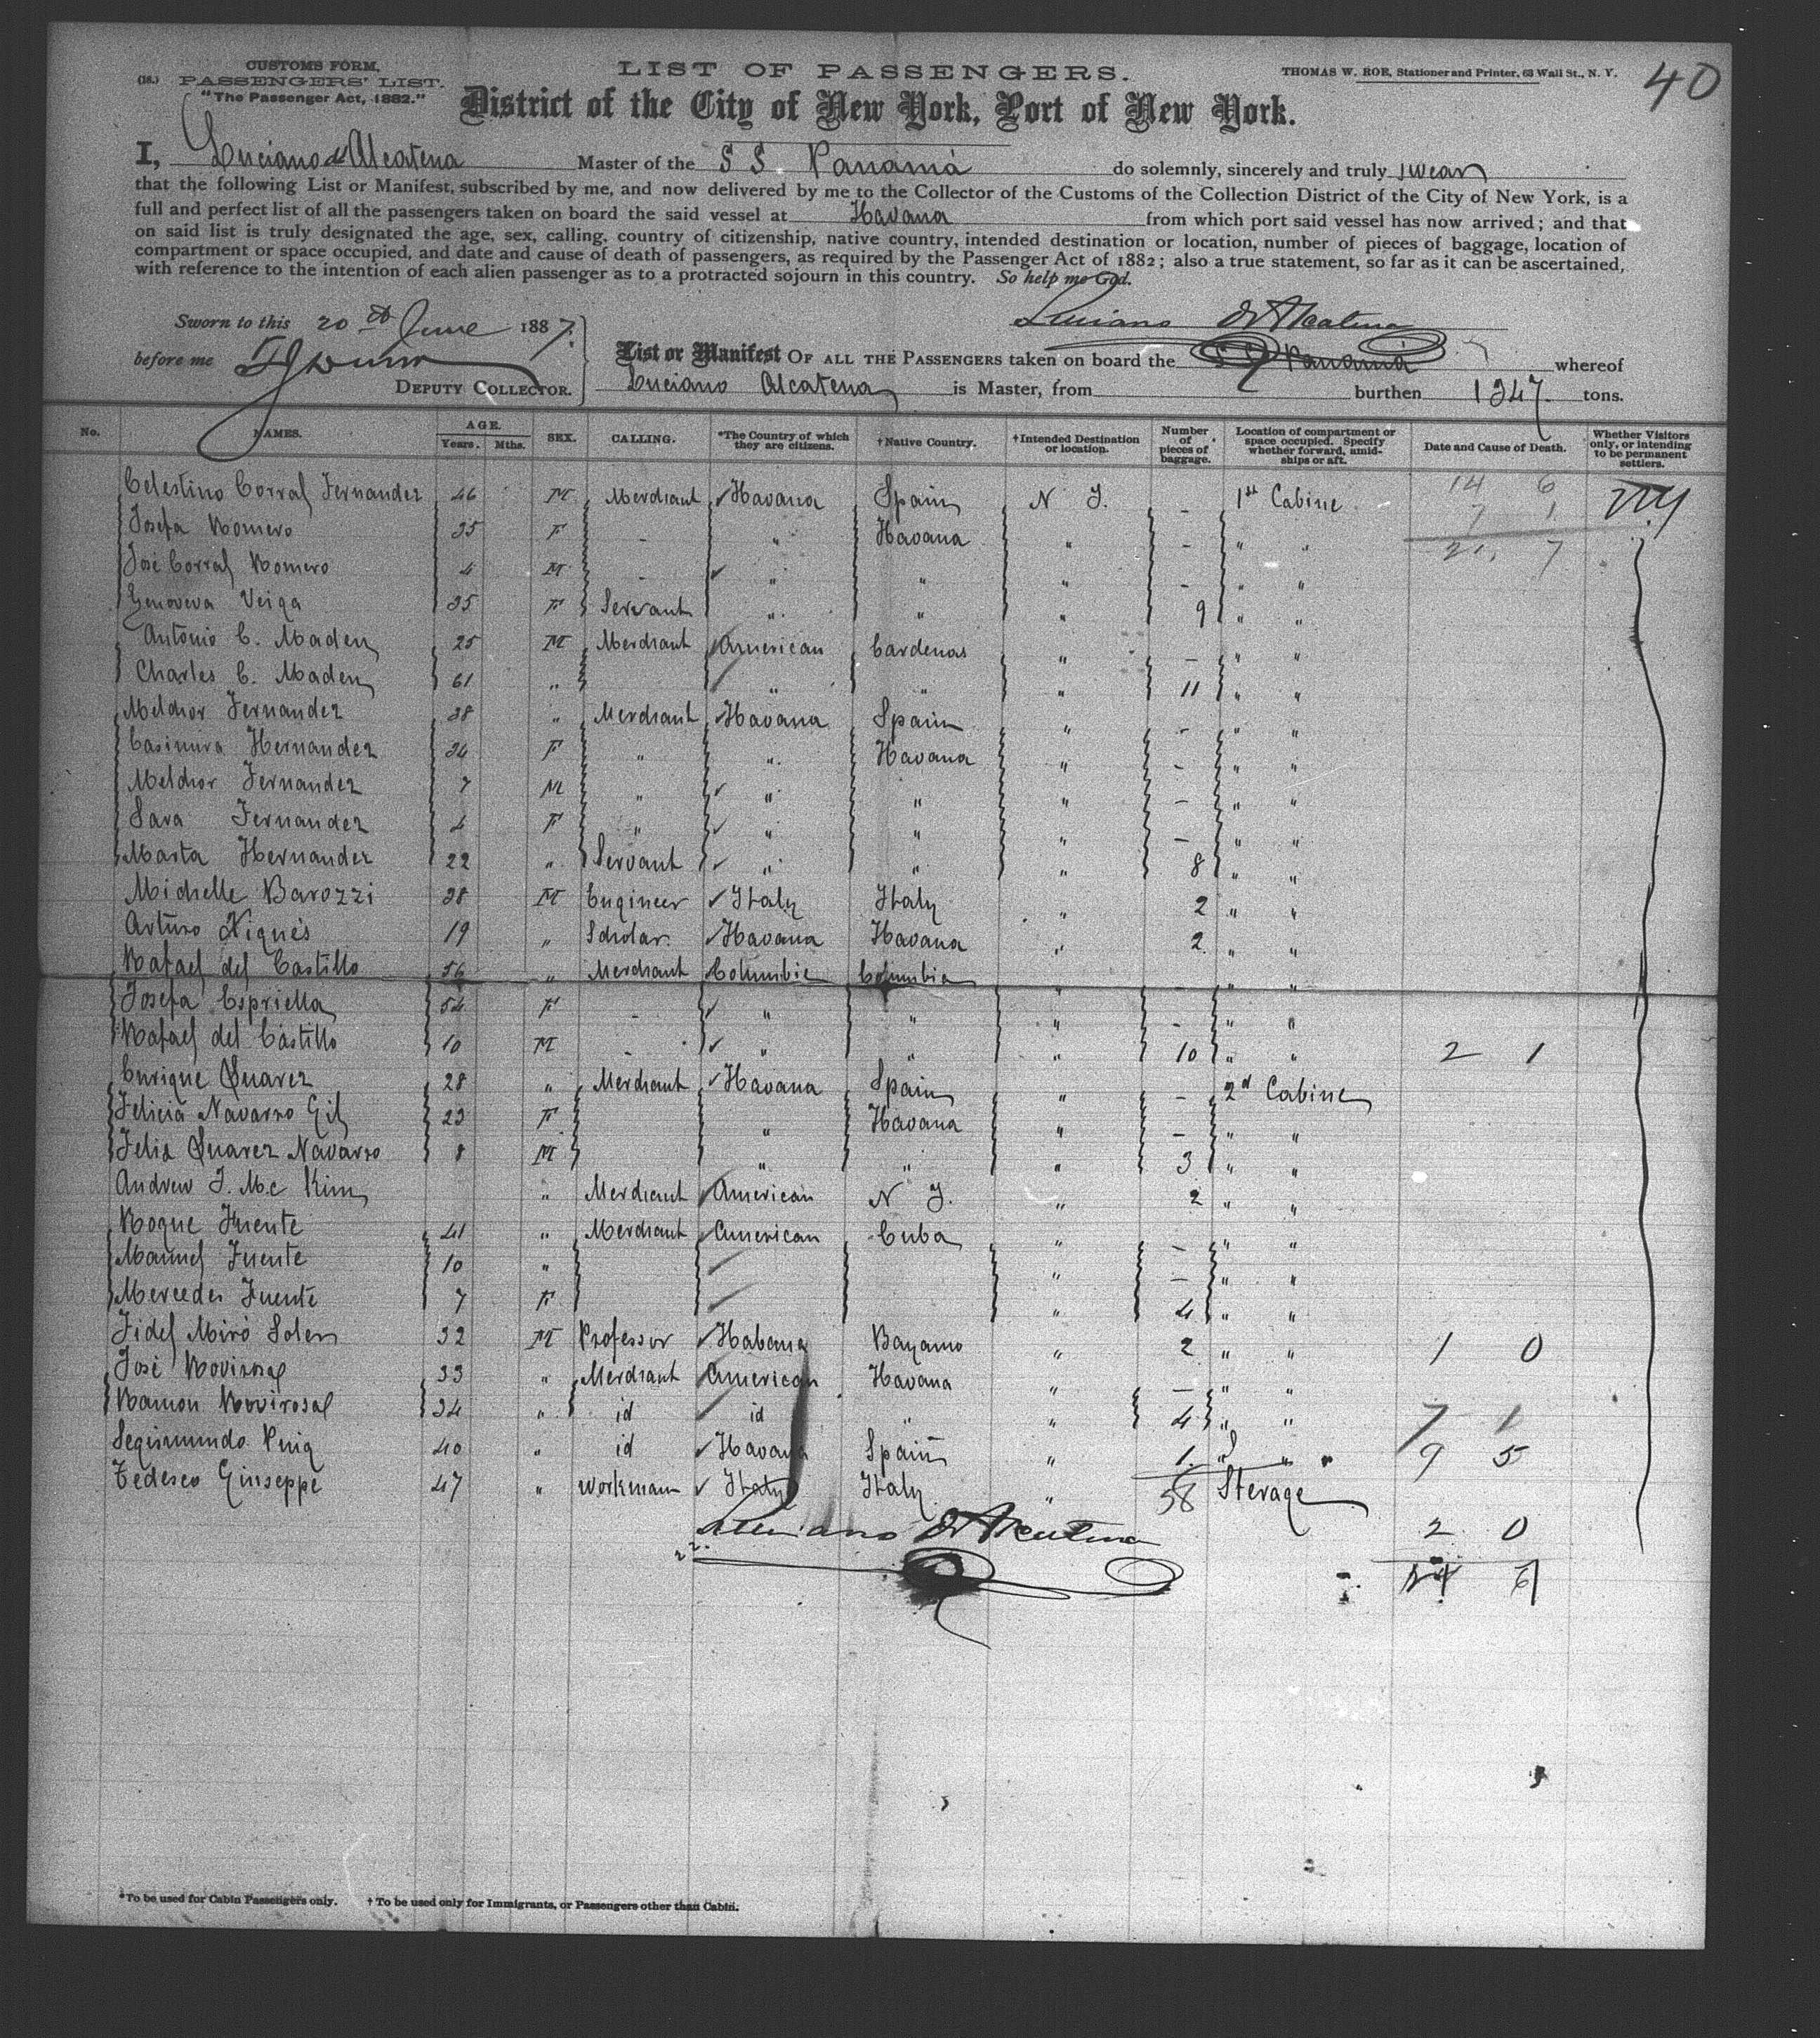 CUSTOMS FORM.
(18.) PASSENGERS' LIST.
"The Passenger Act, 1882."
LIST OF PASSENGERS.
THOMAS W. ROE, Stationer and Printer, 63 Wall St., N. Y.
40
District of the City of New York, Port of New York.
I, Luciano d Alcatena Master of the S S. Panamá do solemnly, sincerely and truly swear
that the following List or Manifest, subscribed by me, and now delivered by me to the Collector of the Customs of the Collection District of the City of New York, is a
full and perfect list of all the passengers taken on board the said vessel at Havana from which port said vessel has now arrived; and that
on said list is truly designated the age, sex, calling, country of citizenship, native country, intended destination or location, number of pieces of baggage, location of
compartment or space occupied, and date and cause of death of passengers, as required by the Passenger Act of 1882; also a true statement, so far as it can be ascertained,
with reference to the intention of each alien passenger as to a protracted sojourn in this country. So help me God.
Sworn to this 20th June 1887.
Luciano D'Alcatena
before me
List or Manifest OF ALL THE PASSENGERS taken on board the S S Panamá whereof
DEPUTY COLLECTOR. Luciano Alcatena is Master, from burthen 1347. tons.
No. NAMES. AGE. Years. Mths. SEX. CALLING. *The Country of which they are citizens. †Native Country. †Intended Destination or location. Number of pieces of baggage. Location of compartment or space occupied. Specify whether forward, amidships or aft. Date and Cause of Death. Whether Visitors only, or intending to be permanent settlers.
Celestino Corral Fernandez 46 M Merchant Havana Spain N Y. - 1st Cabine 14 6
Josefa Romero 35 F - " Havana " - " " 7 1
José Corral Romero 4 M - " " " - " " 21, 7
Genoveva Veiga 35 F Servant " " " 9 " "
Antonio C. Maden 25 M Merchant American Cardenas " - " "
Charles C. Maden 61 " " " " 11 " "
Melchor Fernandez 38 " Merchant Havana Spain " - " "
Casimira Hernandez 34 F " " Havana " - " "
Melchor Fernandez 7 M " " " " - " "
Sara Fernandez 4 F " " " " - " "
Marta Hernandez 22 " Servant " " " 8 " "
Michelle Barozzi 38 M Engineer Italy Italy " 2 " "
Arturo Xiqués 19 " Scholar. Havana Havana " 2 " "
Rafael del Castillo 56 " Merchant Columbia Columbia " - " "
Josefa Espriella 54 F - " " " - " "
Rafael del Castillo 10 M - " " " 10 " " 2 1
Enrique Suarez 28 " Merchant Havana Spain " - 2d Cabine
Felicia Navarro Gil 23 F " Havana " - " "
Felix Suarez Navarro 8 M " " " 3 " "
Andrew J. Mc Kim " Merchant American N Y. " 2 " "
Roque Fuente 41 " Merchant American Cuba " - " "
Manuel Fuente 10 " " - " "
Mercedes Fuente 7 F " 4 " "
Fidel Miró Soler 32 M Professor Habana Bayamo " 2 " " 1 0
José Rovirosal 33 " Merchant American Havana " - " "
Ramon Rovirosal 34 " id id " " 4 " " 7 1
Segismundo Puig 40 " id Havana Spain " 1 " " 9 5
Tedesco Giuseppe 47 " Workman Italy Italy " 58 Sterage
Luciano D'Alcatena 2 0
*To be used for Cabin Passengers only. †To be used only for Immigrants, or Passengers other than Cabin.